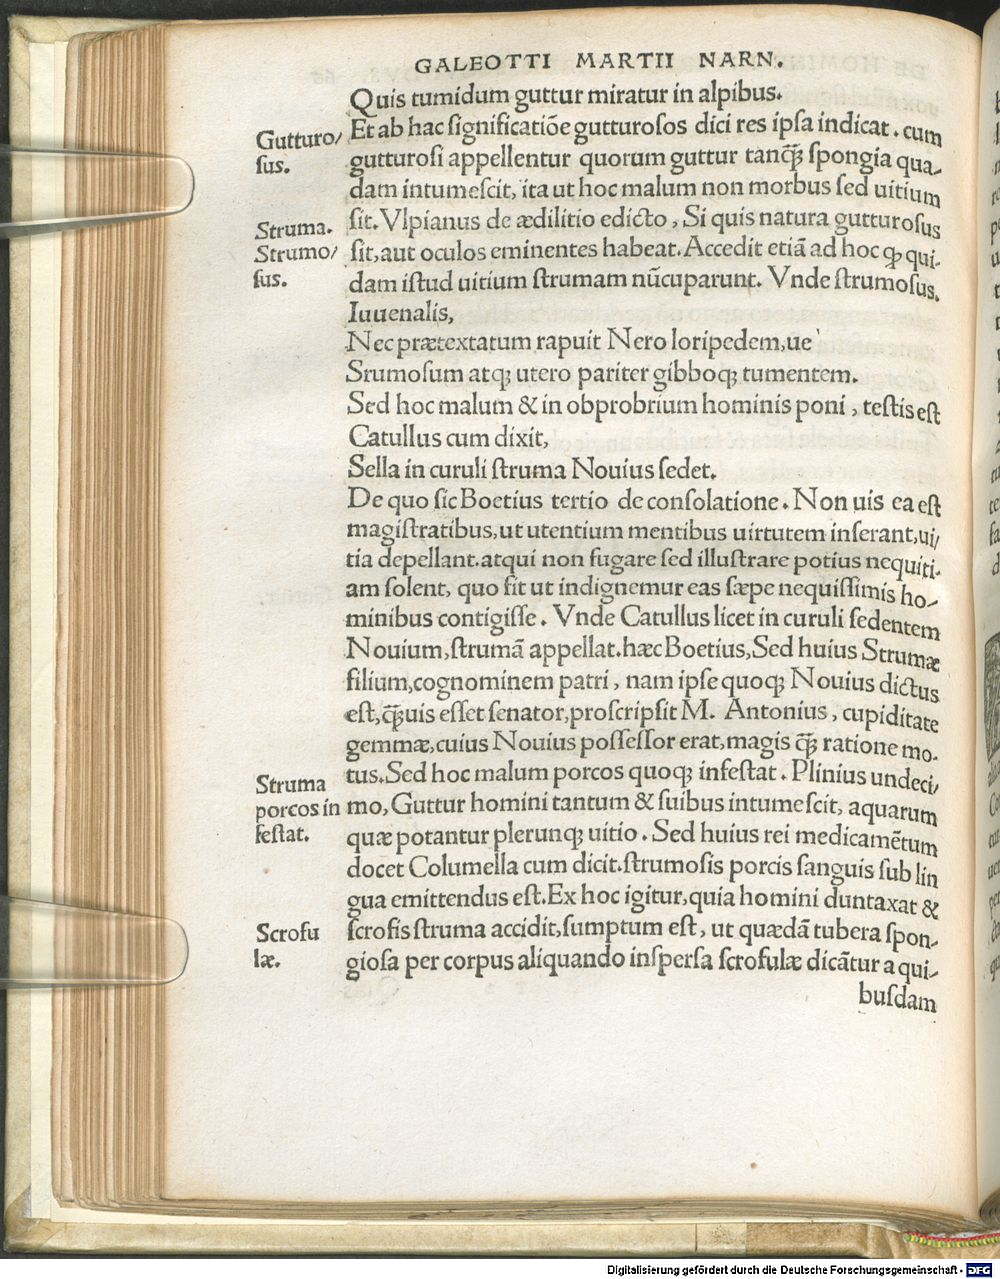 GALEOTTI MARTII NARN.
Quis tumidum guttur miratur in alpibus.
Et ab hac ſignificatiõe gutturoſos dici res ipſa indicat. cum
Gutturo/
ſus.
gutturoſi appellentur quorum guttur tanq̃ȝ ſpongia qua-
dam intumeſcit, ita ut hoc malum non morbus ſed uitium
ſit. Vlpianus de ædilitio edicto, Si quis natura gutturoſus
Struma.
Strumo/
ſus.
ſit, aut oculos eminentes habeat. Accedit etiã ad hoc ꝙ qui-
dam iſtud uitium ſtrumam nũcuparunt. Vnde ſtrumoſus.
Iuuenalis,
Nec prætextatum rapuit Nero loripedem, ue
Srumoſum atqꝫ utero pariter gibboqꝫ tumentem.
Sed hoc malum & in obprobrium hominis poni, teſtis eſt
Catullus cum dixit,
Sella in curuli ſtruma Nouius ſedet.
De quo ſic Boetius tertio de conſolatione. Non uis ea eſt
magiſtratibus, ut utentium mentibus uirtutem inſerant, ui/
tia depellant. atqui non fugare ſed illuſtrare potius nequiti-
am ſolent, quo fit ut indignemur eas ſæpe nequiſſimis ho-
minibus contigiſſe. Vnde Catullus licet in curuli ſedentem
Nouium, ſtrumã appellat. hæc Boetius, Sed huius Strumæ
filium, cognominem patri, nam ipſe quoqꝫ Nouius dictus
eſt, q̃ȝuis eſſet ſenator, proſcripſit M. Antonius, cupiditate
gemmæ, cuius Nouius poſſeſſor erat, magis q̃ȝ ratione mo-
tus. Sed hoc malum porcos quoqꝫ infeſtat. Plinius undeci/
Struma
porcos in
feſtat.
mo, Guttur homini tantum & ſuibus intumeſcit, aquarum
quæ potantur plerunqꝫ uitio. Sed huius rei medicamẽtum
docet Columella cum dicit. ſtrumoſis porcis ſanguis ſub lin
gua emittendus eſt. Ex hoc igitur, quia homini duntaxat &
Scrofu
læ.
ſcrofis ſtruma accidit, ſumptum eſt, ut quædã tubera ſpon-
gioſa per corpus aliquando inſperſa ſcrofulæ dicãtur a qui-
buſdam
Digitalisierung gefördert durch die Deutsche Forschungsgemeinschaft - DFG